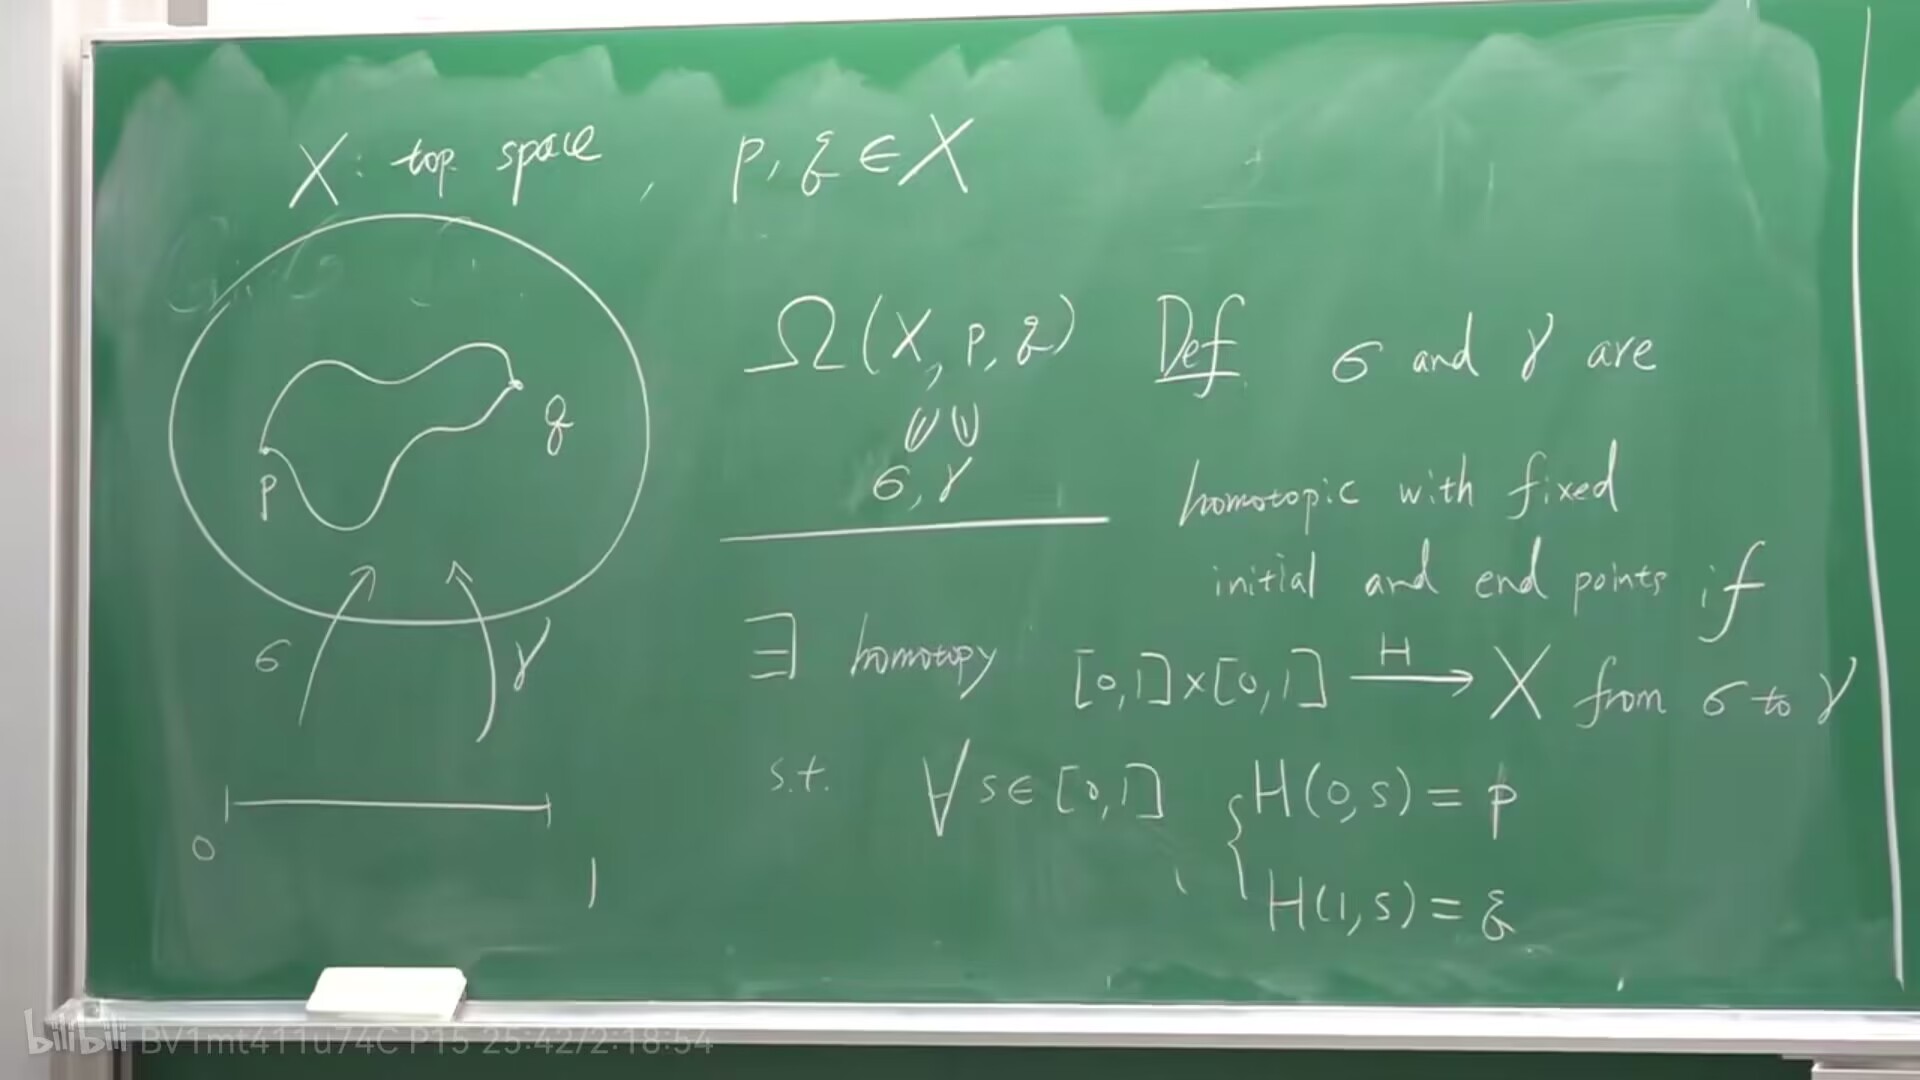 X: top. space, p, q ∈ X
Ω(X, p, q)
σ, γ
Def σ and γ are
homotopic with fixed
initial and end points if
∃ homotopy [0,1]×[0,1] —H→ X from σ to γ
s.t. ∀ s∈[0,1], { H(0,s) = p
H(1,s) = q
p
q
σ
γ
0
1
bilibili BV1mt411u74C P15 25:42/2:18:54